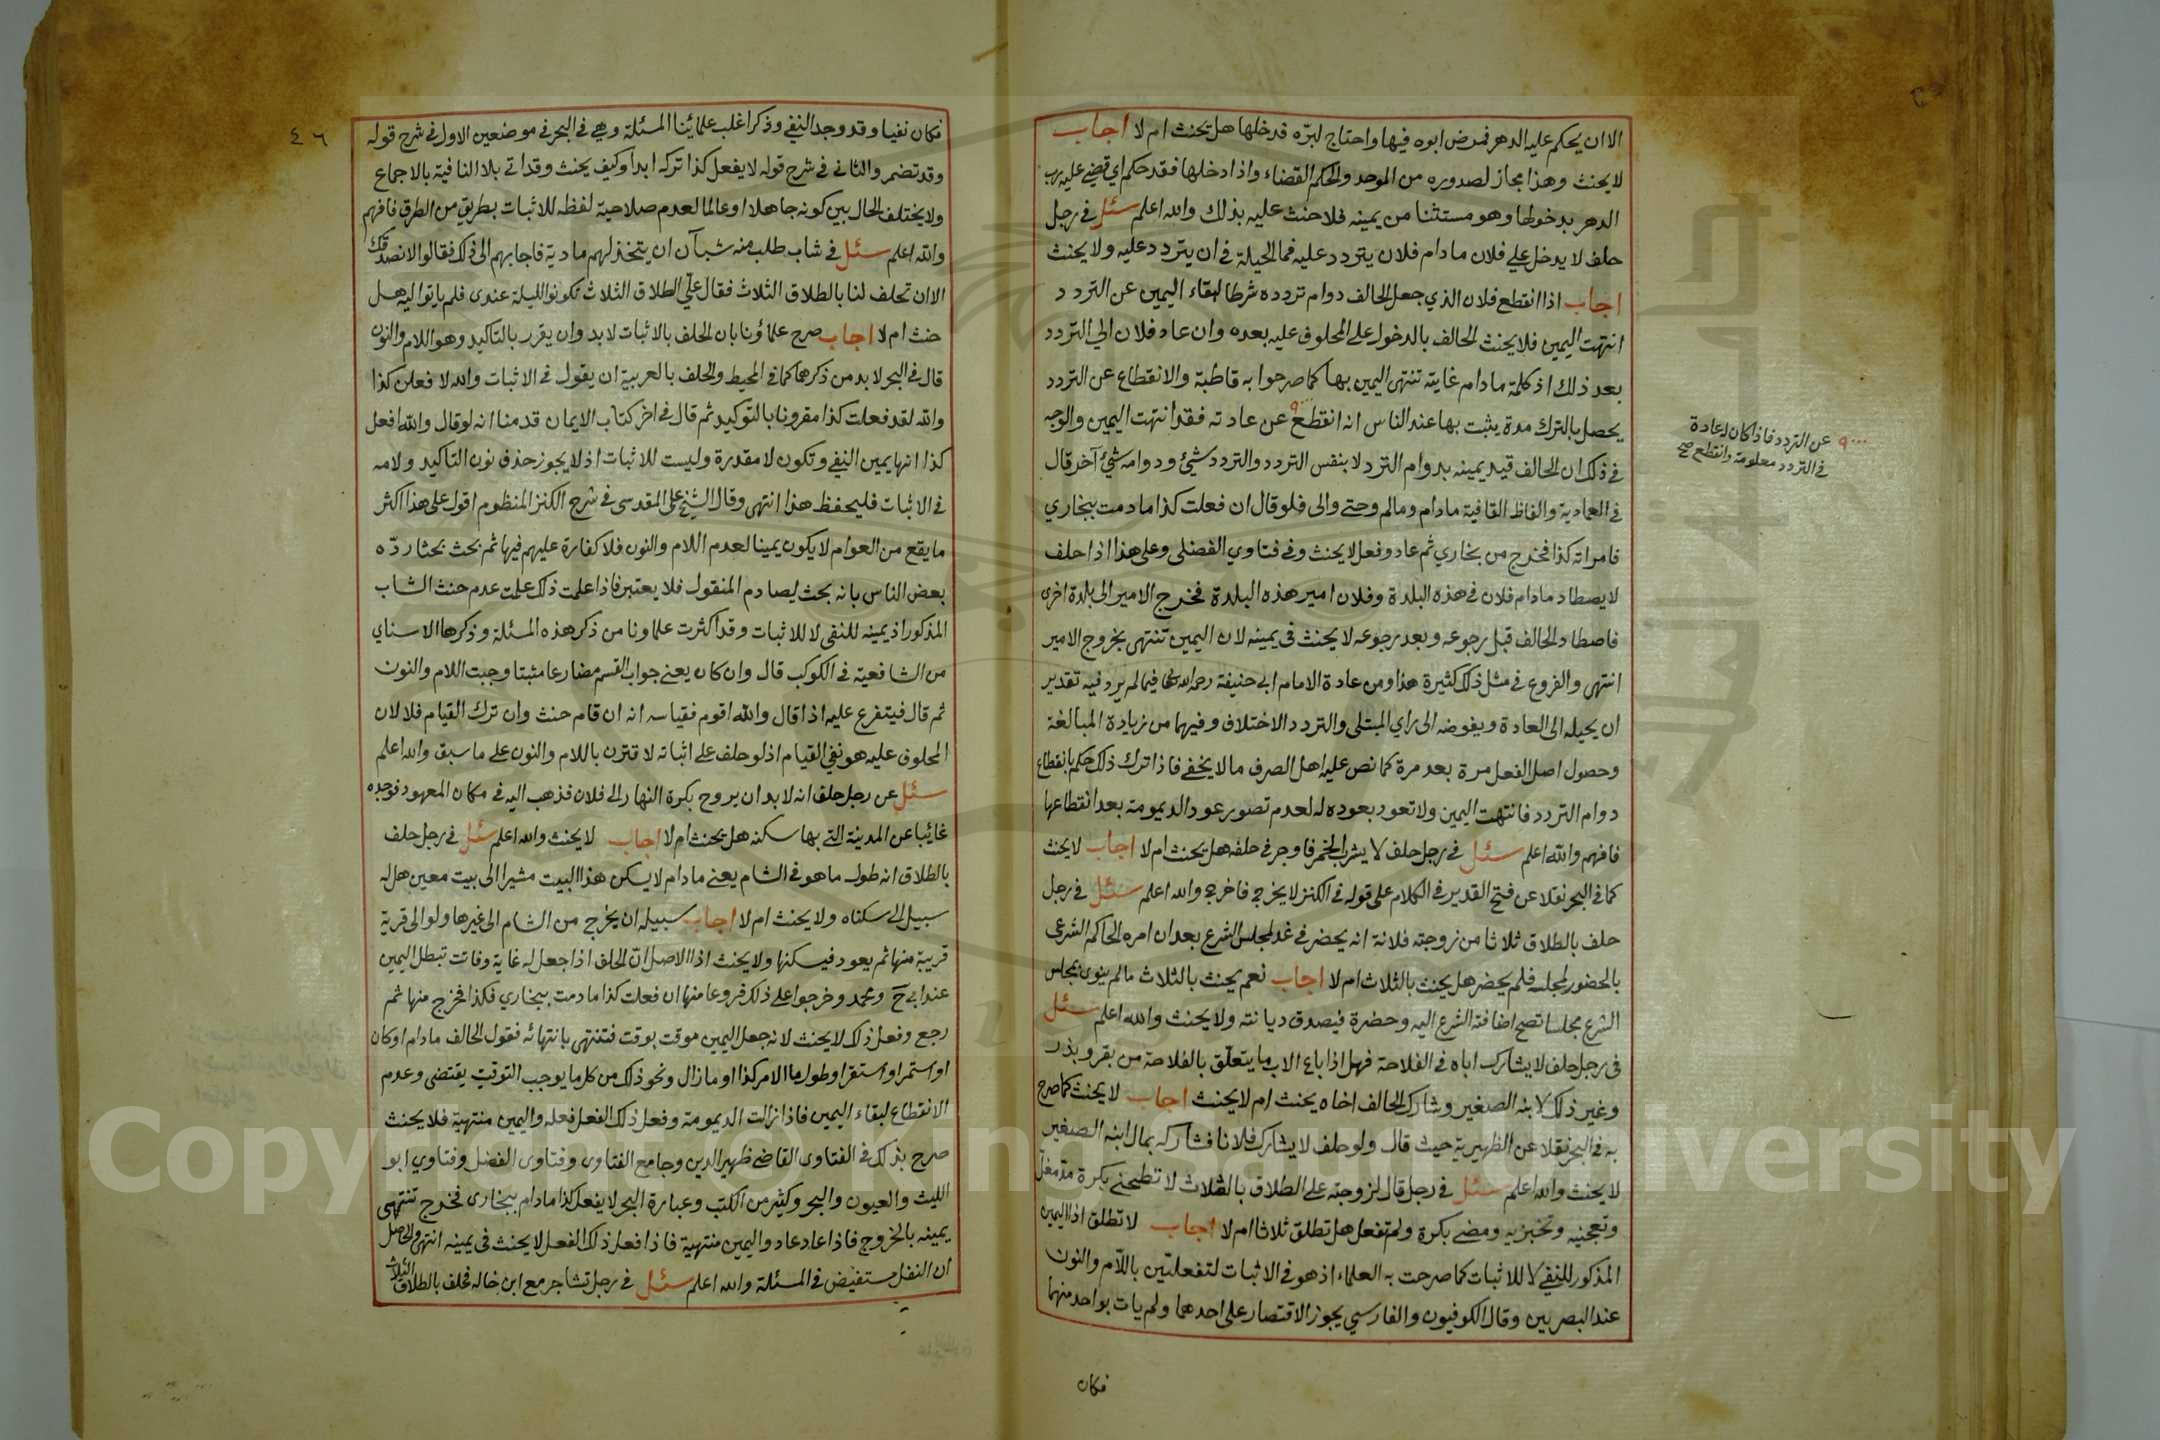 الا ان يحكم عليه الدهر فمرض ابوه فيها واحتاج لبرّه فدخلها هل يحنث ام لا اجاب
لا يحنث وهذا مجاز لصدوره من الموحد والحكم القضاء واذا دخلها فقد حكم اي قضي عليه رب
الدهر بدخولها وهو مستثنا من يمينه فلا حنث عليه بذلك والله اعلم سئل في رجل
حلف لا يدخل علي فلان ما دام فلان يتردد عليه فما الحيلة في ان يتردد عليه ولا يحنث
اجاب اذا انقطع فلان الذي جعل الحالف دوام تردده شرطا لبقاء اليمين عن التردد
انتهت اليمين فلا يحنث الحالف بالدخول على المحلوف عليه بعده وان عاد فلان الي التردد
بعد ذلك اذ كلمة ما دام غاية تنتهى اليمين بها كما صرحوا به قاطبة والانقطاع عن التردد
يحصل بالترك مدة يثبت بها عند الناس انه انقطع عن عادته فقد انتهت اليمين والوجه
في ذلك ان الحالف قيد يمينه بدوام التردد لا بنفس التردد والتردد شئ ودوامه شئ آخر قال
في العمادية والفاظ القافية مادام ومالم وحتى والى فلو قال ان فعلت كذا ما دمت ببخاري
فامراته كذا فخرج من بخاري ثم عاد وفعل لا يحنث وفي فتاوي الفضلى وعلى هذا اذا حلف
لا يصطاد مادام فلان في هذه البلدة وفلان امير هذه البلدة فخرج الامير الى بلدة اخرى
فاصطاد الحالف قبل رجوعه وبعد رجوعه لا يحنث في يمينه لان اليمين تنتهى بخروج الامير
انتهى والفروع في مثل ذلك كثيرة هذا ومن عادة الامام ابي حنيفة رحمه الله تعالى فيما لم يرد فيه تقدير
ان يحيله الى العادة ويفوضه الى راي المبتلى والتردد الاختلاف وفيهما من زيادة المبالغة
وحصول اصل الفعل مرة بعد مرة كما نص عليه اهل الصرف ما لا يخفى فاذا ترك ذلك حكم بانقطاع
دوام التردد فانتهت اليمين ولا تعود بعوده له لعدم تصور عود الديمومة بعد انقطاعها
فافهم والله اعلم سئل في رجل حلف لا يشرب الخمر فاوجر في حلقه هل يحنث ام لا اجاب لا يحنث
كما في البحر نقلا عن فتح القدير في الكلام على قوله في الكنز لا يخرج فاخرج والله اعلم سئل في رجل
حلف بالطلاق ثلاثا من زوجته فلانة انه يحضر في غد لمجلس الشرع بعد ان امره الحاكم الشرعي
بالحضور لمجلسه فلم يحضر هل يحنث بالثلاث ام لا اجاب نعم يحنث بالثلاث ما لم ينوى بمجلس
الشرع مجلسا تصح اضافته الشرع اليه وحضرة فيصدق ديانته ولا يحنث والله اعلم سئل
في رجل حلف لا يشارك اباه في الفلاحة فهل اذا باع الاب ما يتعلق بالفلاحة من بقر وبذر
وغير ذلك لابنه الصغير وشارك الحالف اخاه يحنث ام لا يحنث اجاب لا يحنث كما صرح
به في البحر نقلا عن الظهيرية حيث قال ولو حلف لا يشارك فلانا فشاركه بمال ابنه الصغير
لا يحنث والله اعلم سئل في رجل قال لزوجته علي الطلاق بالثلاث لا تطحني بكرة
وتعجنيه وتخبزيه ومضى بكرة ولم تفعل هل تطلق ثلاثا ام لا اجاب لا تطلق اذ اليمين
المذكور للنفي لا للاثبات كما صرحت به العلماء اذ هو في الاثبات لتفعلين باللام والنون
عند البصريين وقال الكوفيون والفارسي يجوز الاقتصار على احدهما ولم يات بواحد منهما
فكان
٩ عن التردد فاذا كان له عادة
في التردد معلومة وانقطع صح
٤٦
فكان نفيا وقد وجد النفي وذكر اغلب علمائنا المسئلة وهي في البحر في موضعين الاول في شرح قوله
وقد تضمر والثاني في شرح قوله لا يفعل كذا تركه ابدا وكيف يحنث وقد اتى بلا النافية بالاجماع
ولا يختلف الحال بين كونه جاهلا او عالما لعدم صلاحية لفظه للاثبات بطريق من الطرق فافهم
والله اعلم سئل في شاب طلب منه شبان ان يتخذ لهم مادبة فاجابهم الى ذلك فقالوا لا نصدقك
الا ان تحلف لنا بالطلاق الثلاث فقال عليّ الطلاق الثلاث تكونوا الليلة عندى فلم ياتوا اليه هل
حنث ام لا اجاب صرح علماؤنا بان الحلف بالاثبات لا بد وان يقرر بالتاكيد وهو اللام والنون
قال في البحر لا بد من ذكرهما كما في المحيط والحلف بالعربية ان يقول في الاثبات والله لا فعلن كذا
والله لقد فعلت كذا مقرونا بالتوكيد ثم قال في اخر كتاب الايمان قدمنا انه لو قال والله افعل
كذا انها يمين النفي وتكون لا مقدرة وليست للاثبات اذ لا يجوز حذف نون التاكيد ولامه
في الاثبات فليحفظ هذا انتهى وقال الشيخ على المقدسى في شرح الكنز المنظوم اقول على هذا اكثر
ما يقع من العوام لا يكون يمينا لعدم اللام والنون فلا كفارة عليهم فيها ثم بحث بحثا ردّه
بعض الناس بانه بحث يصادم المنقول فلا يعتبر فاذا علمت ذلك علمت عدم حنث الشاب
المذكور اذ يمينه للنفى لا للاثبات وقد اكثرت علماونا من ذكر هذه المسئلة وذكرها الاسناي
من الشافعية في الكوكب قال وان كان يعني جواب القسم مضارعا مثبتا وجبت اللام والنون
ثم قال فيتفرع عليه اذا قال والله اقوم فقياسه انه ان قام حنث وان ترك القيام فلا لان
المحلوف عليه هو نفي القيام اذ لو حلف على اثباته لاقترن باللام والنون على ما سبق والله اعلم
سئل عن رجل حلف انه لا بد ان يروح بكرة النهار الى فلان فذهب اليه في مكان المعهود فوجده
غائبا عن المدينة التي بها سكنه هل يحنث ام لا اجاب لا يحنث والله اعلم سئل في رجل حلف
بالطلاق انه طول ما هو في الشام يعني ما دام لا يسكن هذا البيت مشيرا الى بيت معين هل له
سبيل الى سكناه ولا يحنث ام لا اجاب سبيله ان يخرج من الشام الى غيرها ولو الى قرية
قريبة منها ثم يعود فيسكنها ولا يحنث اذ الاصل انّ الحلف اذا جعل له غاية وفاتت تبطل اليمين
عند ابي ح ومحمد وخرجوا على ذلك فروعا منها ان فعلت كذا ما دمت ببخاري فكذا فخرج منها ثم
رجع وفعل ذلك لا يحنث لانه جعل اليمين موقت بوقت فتنتهى بانتهائه فقول الحالف ما دام او كان
او استمر او استقر او طول ما الامر كذا او ما زال ونحو ذلك من كل ما يوجب التوقيت يقتضى وعدم
الانقطاع لبقاء اليمين فاذا زالت الديمومة وفعل ذلك الفعل فعله واليمين منتهية فلا يحنث
صرح بذلك في الفتاوى القاضي ظهير الدين وجامع الفتاوى وفتاوى الفضل وفتاوي ابو
الليث والعيون والبحر وكثير من الكتب وعبارة البحر لا يفعل كذا مادام ببخارى فخرج تنتهى
يمينه بالخروج فاذا عاد عاد واليمين منتهية فاذا فعل ذلك الفعل لا يحنث في يمينه انتهى والحاصل
ان النقل مستفيض في المسئلة والله اعلم سئل في رجل تشاجر مع ابن خاله فحلف بالطلاق الثلاث
Copyright © King Saud University